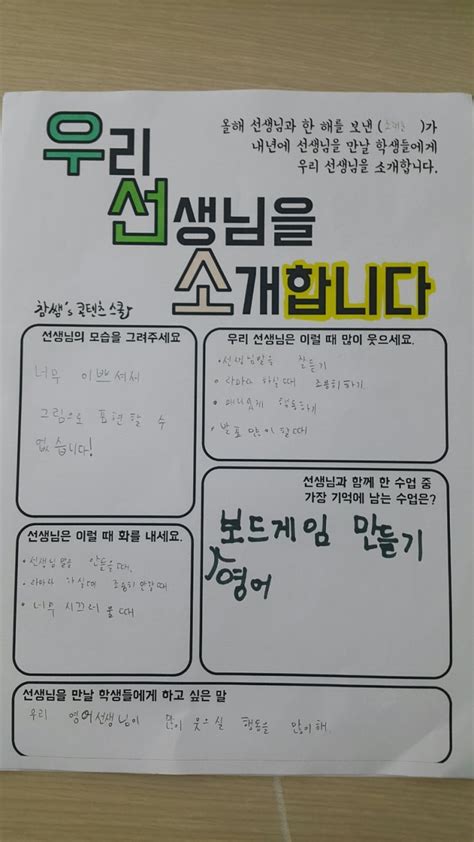 올해 선생님과 한 해를 보낸 ( )가
내년에 선생님을 만날 학생들에게
우리 선생님을 소개합니다.
우리
선생님을
소개합니다
참쌤's 콘텐츠 스쿨
선생님의 모습을 그려주세요
너무 이쁘셔서
그림으로 표현할 수
없습니다!
우리 선생님은 이럴 때 많이 웃으세요.
· 선생님말을 잘듣기
하실때 조용히하기
· 재미있게 행동하기
· 발표 많이 할때
선생님과 함께 한 수업 중
가장 기억에 남는 수업은?
보드게임 만들기
영어
선생님은 이럴 때 화를 내세요.
· 선생님 말을 안들을때.
하실때 조용히 안할때
· 너무 시끄러울때
선생님을 만날 학생들에게 하고 싶은 말
우리 영어선생님이 많이 웃으실 행동을 많이해.